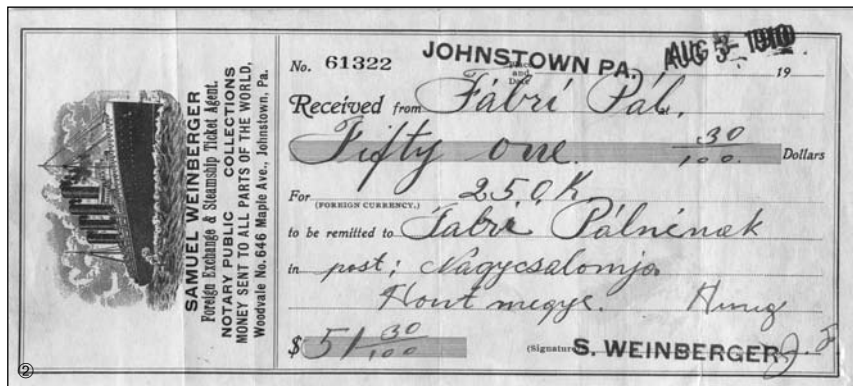 SAMUEL WEINBERGER
Foreign Exchange & Steamship Ticket Agent.
NOTARY PUBLIC COLLECTIONS
MONEY SENT TO ALL PARTS OF THE WORLD,
Woodvale No. 646 Maple Ave., Johnstown, Pa.
No. 61322 JOHNSTOWN PA. AUG 3- 1910 19
Place and Date
Received from Fábri Pál.
Fifty one. 30/100. Dollars
For 250 K
(FOREIGN CURRENCY.)
to be remitted to Fabri Pálnénak
in post; Nagycsalomja
Hont megye. Hung
$ 51 30/100 (Signature) S. WEINBERGER
②